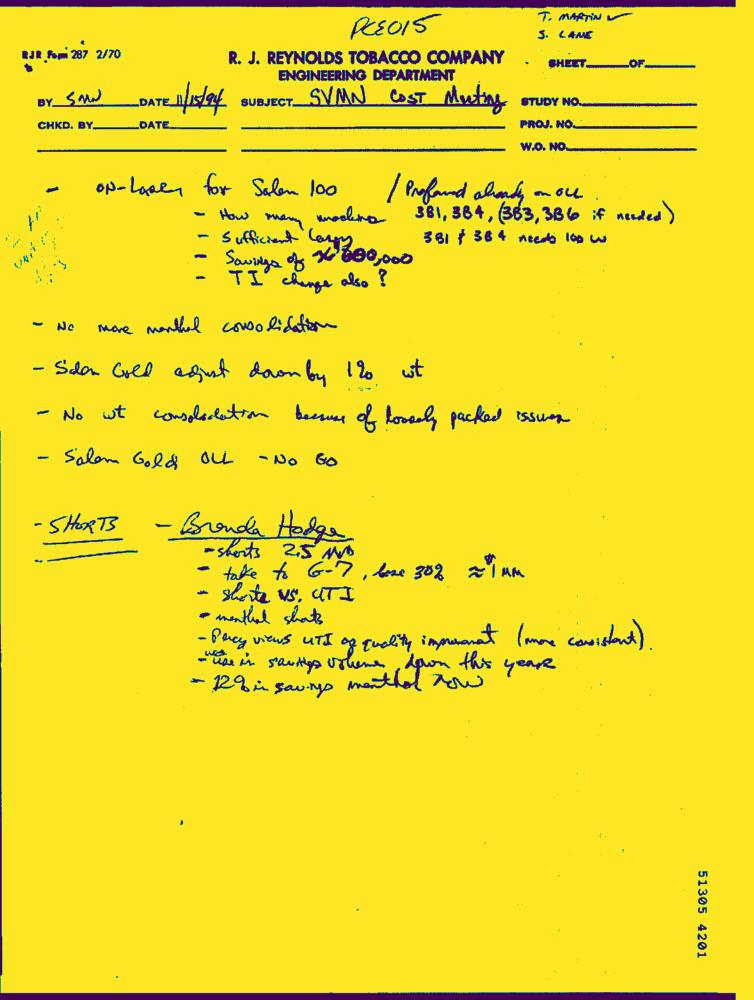 PCE015
T. MARTIN ✓
S. LANE
RJR Form 287 2/70
R. J. REYNOLDS TOBACCO COMPANY
ENGINEERING DEPARTMENT
SHEET OF
BY SMN DATE 11/15/94 SUBJECT SVMN COST Meeting STUDY NO.
CHKD. BY DATE PROJ. NO.
W.O. NO.
- ON-Laser for Salem 100 / Preferred already on OLL
- How many machine 381, 384, (383, 386 if needed)
- Sufficient 381 & 384 needs 100 W
- Savings of 600,000
- TI change also ?
- No more menthol consolidation
- Salem Gold adjust down by 1% wt
- No wt consolodation because of loosely packed issues
- Salem Golds OLL - No GO
- SHORTS - Brenda Hodge
- shorts 2.5
- take to G-7, lose 30% ≈ 1 MM
- shorts vs. UTI
- menthol shorts
- Percy views UTI as quality improvement (more consistent)
- use in savings volume down this year
- 12% in savings menthol now
51305 4201